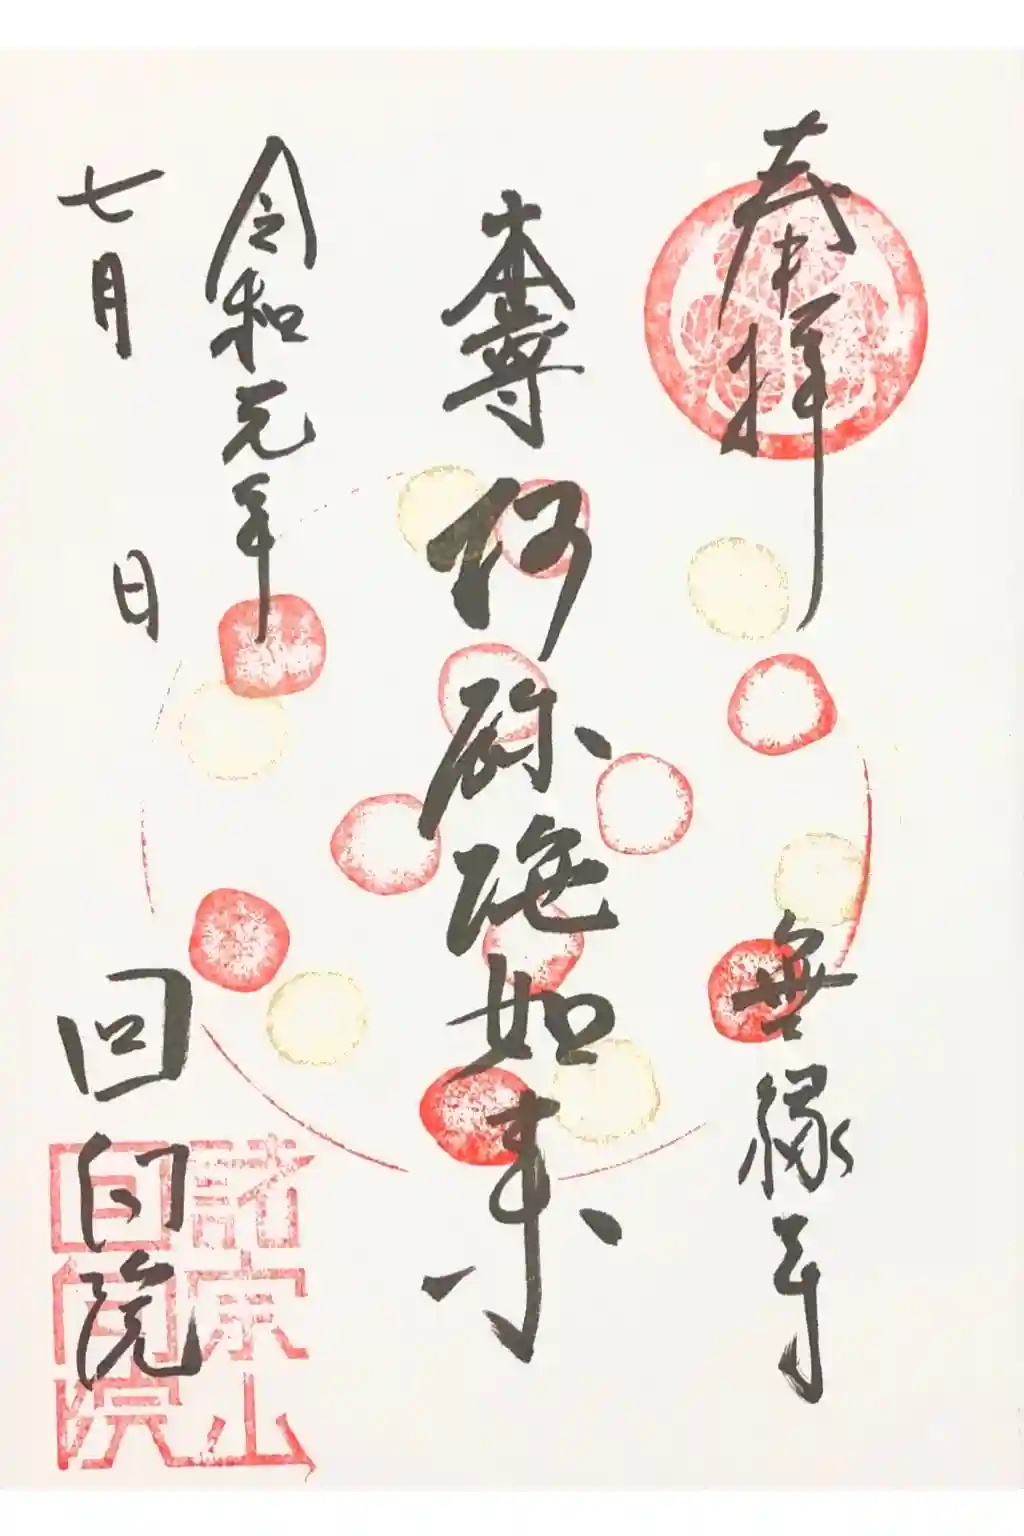 奉拝
無縁寺
本尊
阿弥陀如来
令和元年
七月 日
回向院
諸宗山
回向院